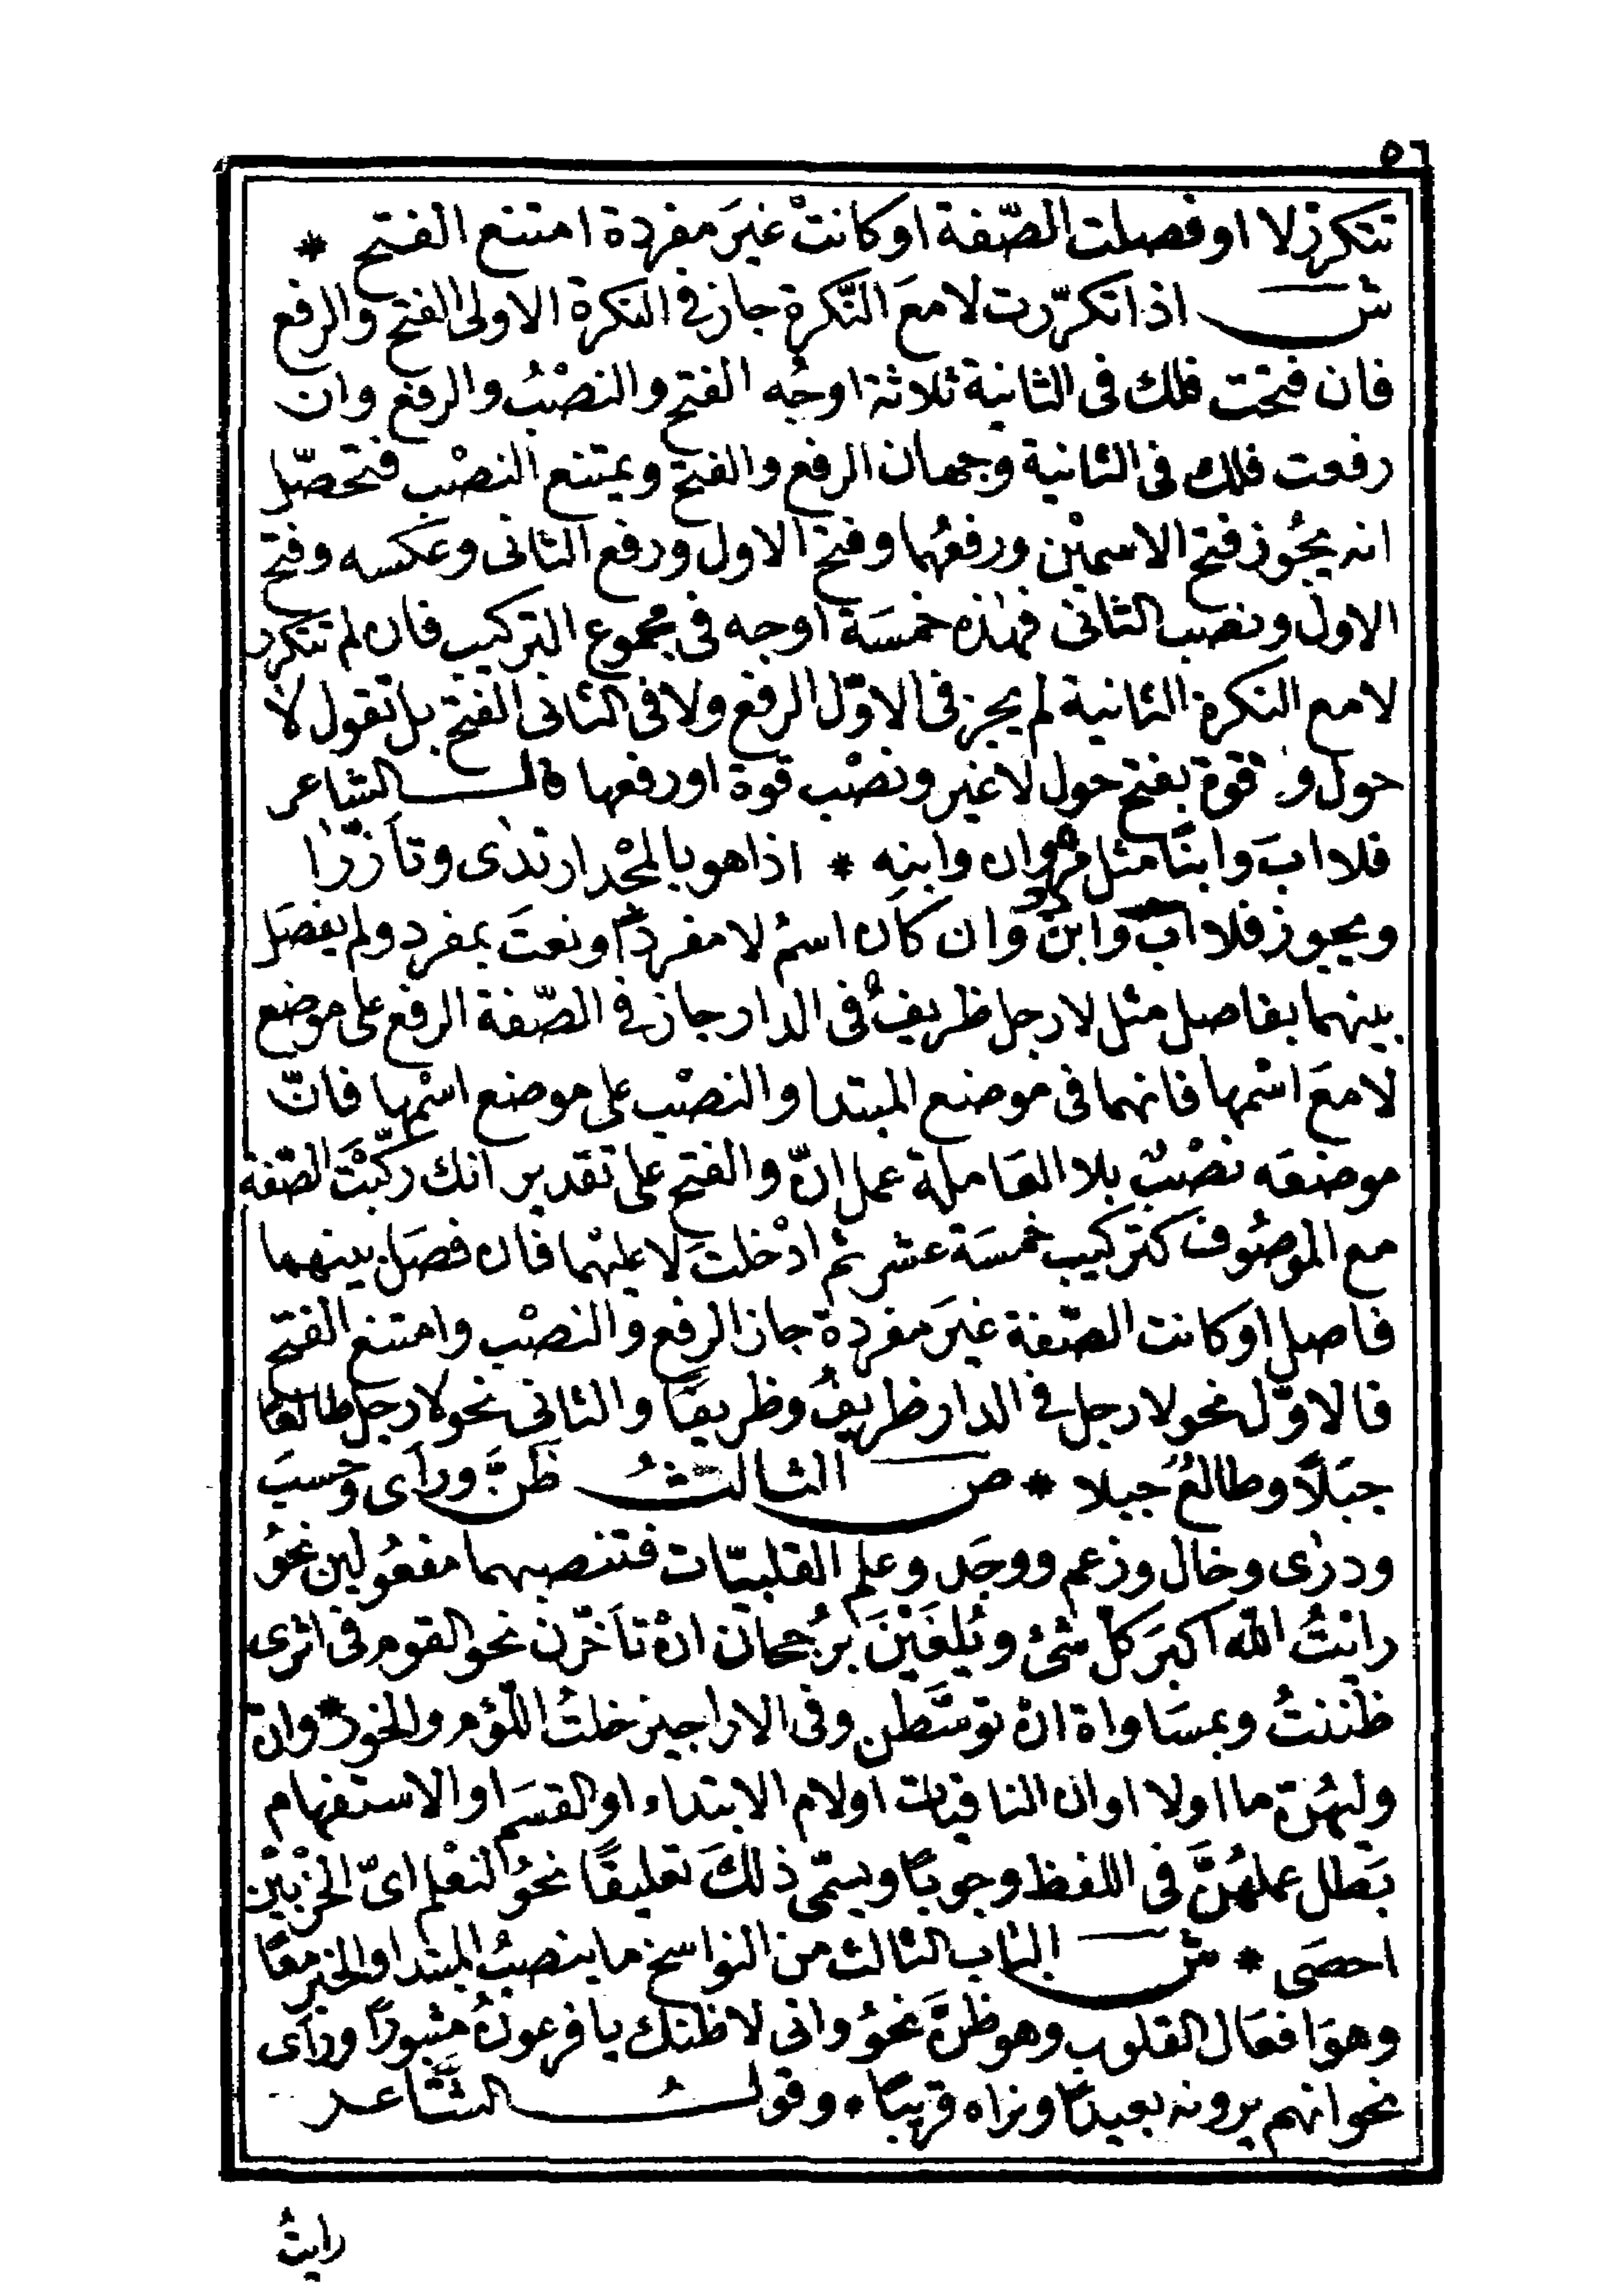 ٥٦
تتكرر لا او فصلت الصّفة او كانتْ غيرَ مفردة امتنع الفتح *
ش اذا تكرّرت لا معَ النّكرة جاز فى النكرة الاولى الفتح والرفع
فان فتحت فلك فى الثانية ثلاثة اوجُه الفتح والنصْبُ والرفع وان
رفعت فلك فى الثانية وجهان الرفع والفتح ويمتنع النصْب فتحصّل
انه يجُوز فتح الاسميْن ورفعُهما وفتح الاول ورفع الثانى وعَكسه وفتح
الاول ونصب الثانى فهٰذه خمسَة اوجه فى مجموع التركيب فان لم تتكرر
لا مع النكرة الثانية لم يجز فى الاوّل الرفع ولا فى الثانى الفتح بل تقول لا
حول وقوة بفتح حول لا غير ونصْب قوة او رفعها قال الشاعر
فلا ابَ وابنًا مثل مروان وابنِه * اذا هو بالمجْد ارتدٰى وتأزّرا
ويجوز فلا اب وابنٌ وان كان اسمُ لا مفردًا ونعتَ بمفرد ولم يفصَل
بينهما بفاصل مثل لا رجل ظريفٌ فى الدار جاز فى الصّفة الرفع على موضع
لا معَ اسْمها فانهما فى موضع المبتدا والنصْب على موضع اسْمها فانّ
موضعَه نصْبٌ بلا العَاملة عمل انّ والفتح على تقدير انك ركّبْتَ الصّفة
مع الموصُوف كتركيب خمسَة عشر ثم ادْخلتَ لا عليْهما فان فصَل بينهما
فاصل او كانت الصّفة غيرَ مفردة جاز الرفع والنصْب وامتنع الفتح
فالاوّل نحو لا رجل فى الدار ظريفٌ وظريفًا والثانى نحو لا رجل طالعًا
جبَلاً وطالعٌ جبلا * ص الثالثُ ظنَّ ورأى وحسبَ
ودرٰى وخال وزعم ووجَد وعلم القلبيّات فتنصبهما مفعُولين نحوُ
رايْتُ اللّه اكبرَ كلّ شئ ويُلغَيْنَ برُجحان انْ تأخّرن نحو القوم فى اثرى
ظننتُ وبمسَاواة انْ توسّطن وفى الاراجيز خلتُ اللّؤم والخور* وان
وليهُنّ ما او لا او ان النافيات او لام الابتداء او القسَم او الاستفهام
بَطل عملهُنَّ فى اللفظ وجوبًا ويسمّى ذلكَ تعليقًا نحوُ لنعْلم اىّ الحزْبيْن
احصَى * ش الباب الثالث من النواسخ ما ينصبُ المبتدا والخبر معًا
وهوَ افعَال القلوب وهو ظنّ نحوُ وانى لاظنك يا فرعونُ مثبورًا ورأى
نحو انهم يرونه بعيدًا ونراه قريبًا * وقولُ الشّاعر
رايتُ